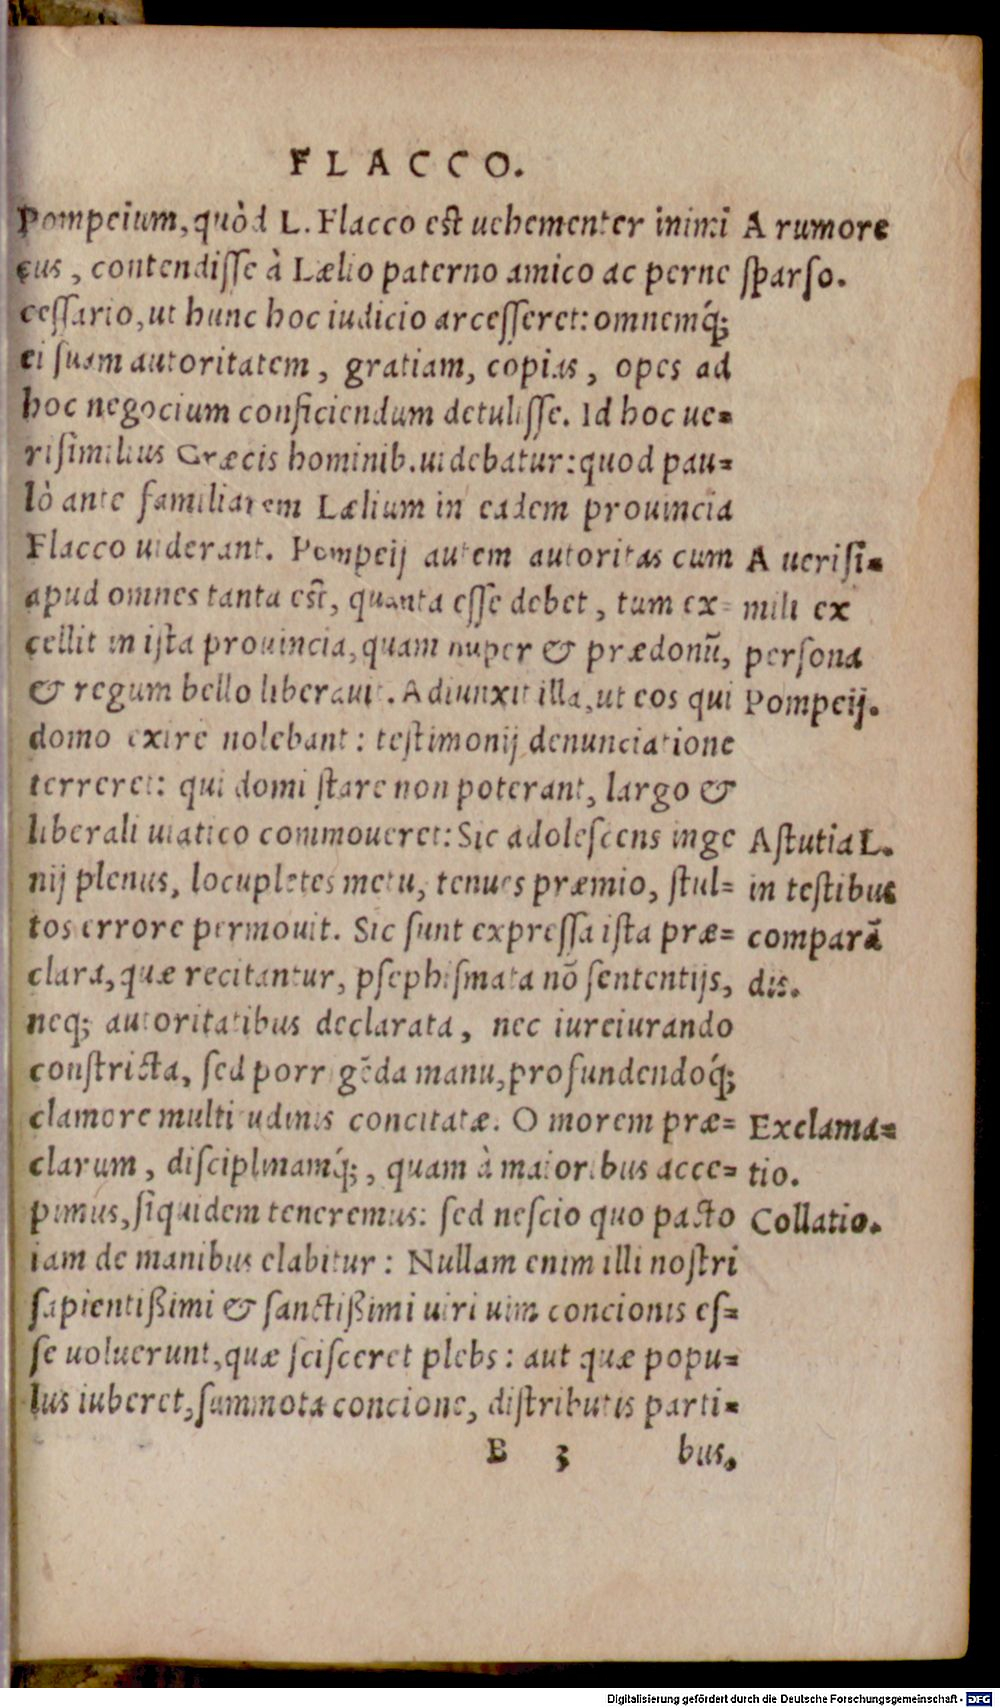 FLACCO.
Pompeium, quòd L. Flacco est uehementer inimi
cus, contendisse à Lælio paterno amico ac perne
cessario, ut hunc hoc iudicio arcesseret: omnemq́;
ei suam autoritatem, gratiam, copias, opes ad
hoc negocium conficiendum detulisse. Id hoc ue=
risimilius Græcis hominib. uidebatur: quod pau=
lò ante familiarem Lælium in eadem prouincia
Flacco uiderant. Pompeij autem autoritas cum
apud omnes tanta est, quanta esse debet, tum ex=
cellit in ista prouincia, quam nuper & prædonũ,
& regum bello liberauit. Adiunxit illa, ut eos qui
domo exire nolebant: testimonij denunciatione
terreret: qui domi stare non poterant, largo &
liberali uiatico commoueret: Sic adolescens inge
nij plenus, locupletes metu, tenues præmio, stul=
tos errore permouit. Sic sunt expressa ista præ=
clara, quæ recitantur, psephismata nõ sententijs,
neq; autoritatibus declarata, nec iureiurando
constricta, sed porrigẽda manu, profundendoq́;
clamore multitudinis concitatæ. O morem præ=
clarum, disciplinamq́;, quam à maioribus acce=
pimus, siquidem teneremus: sed nescio quo pacto
iam de manibus elabitur: Nullam enim illi nostri
sapientißimi & sanctißimi uiri uim concionis es=
se uoluerunt, quæ scisceret plebs: aut quæ popu=
lus iuberet, summota concione, distributis parti=
B 3 bus,
A rumore
sparso.
A uerisi=
mili ex
persona
Pompeij.
Astutia L.
in testibus
comparã
dis.
Exclama=
tio.
Collatio.
Digitalisierung gefördert durch die Deutsche Forschungsgemeinschaft - DFG